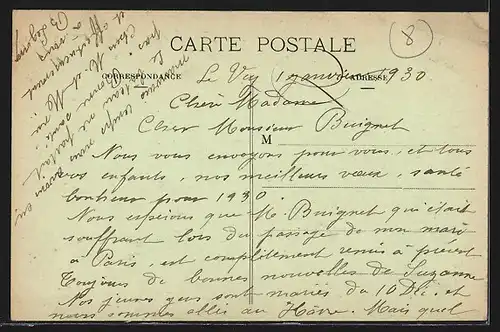 8
CARTE POSTALE
CORRESPONDANCE
ADRESSE
Le Vey 1 janvier 1930
Chère Madame
Cher Monsieur Buignet
M
Nous vous envoyons pour vous, et tous
vos enfants, nos meilleurs vœux, santé
bonheur pour 1930
Nous espérions que M. Buignet qui était
souffrant lors du passage de mon mari
à Paris, est complètement remis à présent
Toujours de bonnes nouvelles de Suzanne
Nos jeunes gens sont mariés du 10 Déc. et
nous sommes allés au Hâvre. Mais quel
mauvais temps
pas
Cher M. et Me
et affectueusement